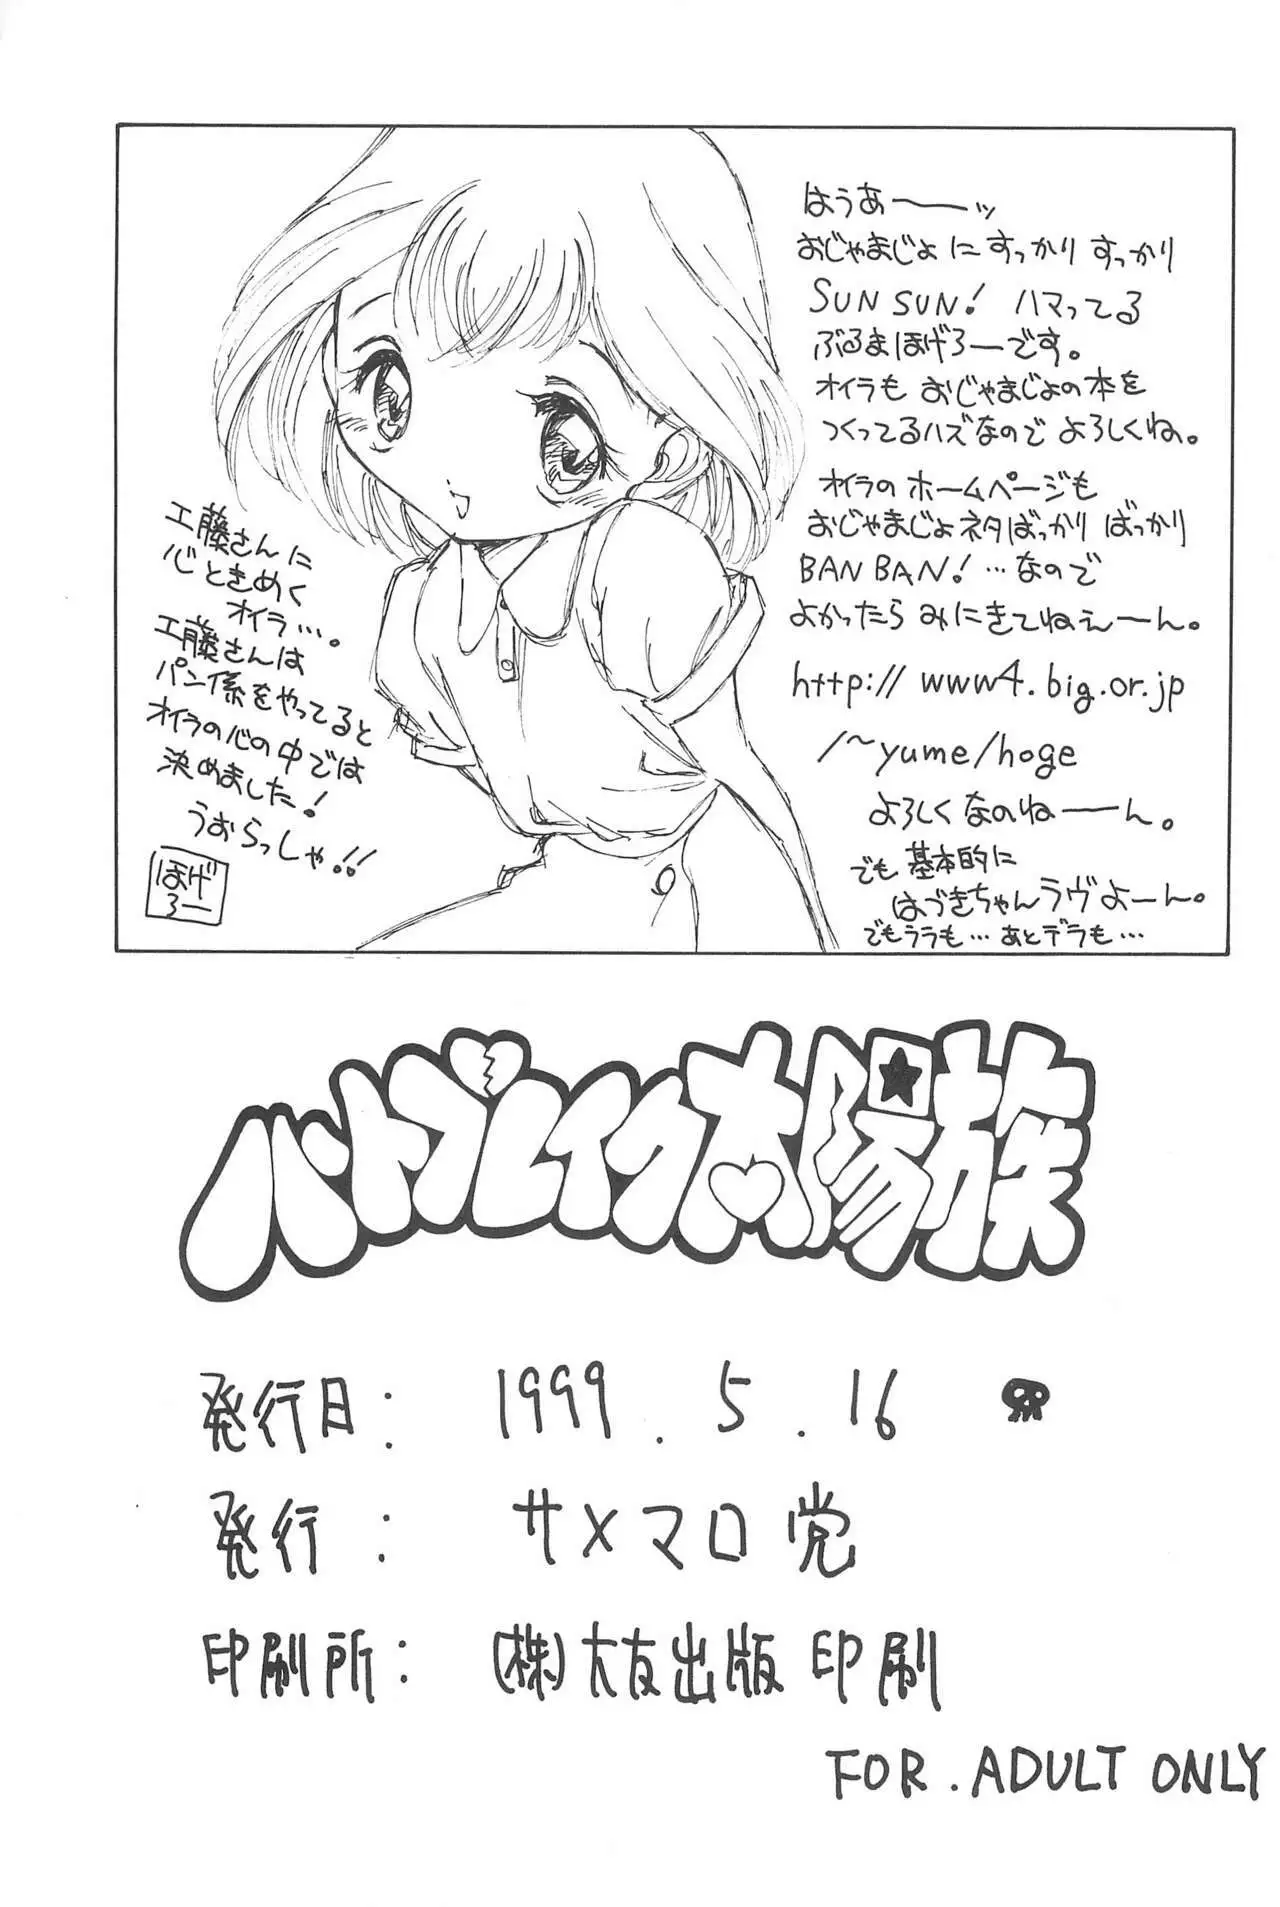 はうあーーッ
おじゃまじょにすっかりすっかり
SUN SUN! ハマってる
ぶるまほげろーです。
オイラも おじゃまじょの本を
つくってるハズなので よろしくね。
オイラの ホームページも
おじゃまじょネタばっかり ばっかり
BAN BAN! …なので
よかったら みにきてねぇーーん。
http://www4.big.or.jp
/~yume/hoge
よろしくなのねーーん。
でも 基本的に
はづきちゃんラヴよーん。
でもララも… あとデラも…
工藤さんに
心ときめく
オイラ…。
工藤さんは
パン係をやってると
オイラの心の中では
決めました!
うおらっしゃ!!
ほげ
ろー
ハートブレイク太陽族
発行日: 1999.5.16
発行 : サメマロ党
印刷所: (株)大友出版印刷
FOR. ADULT ONLY